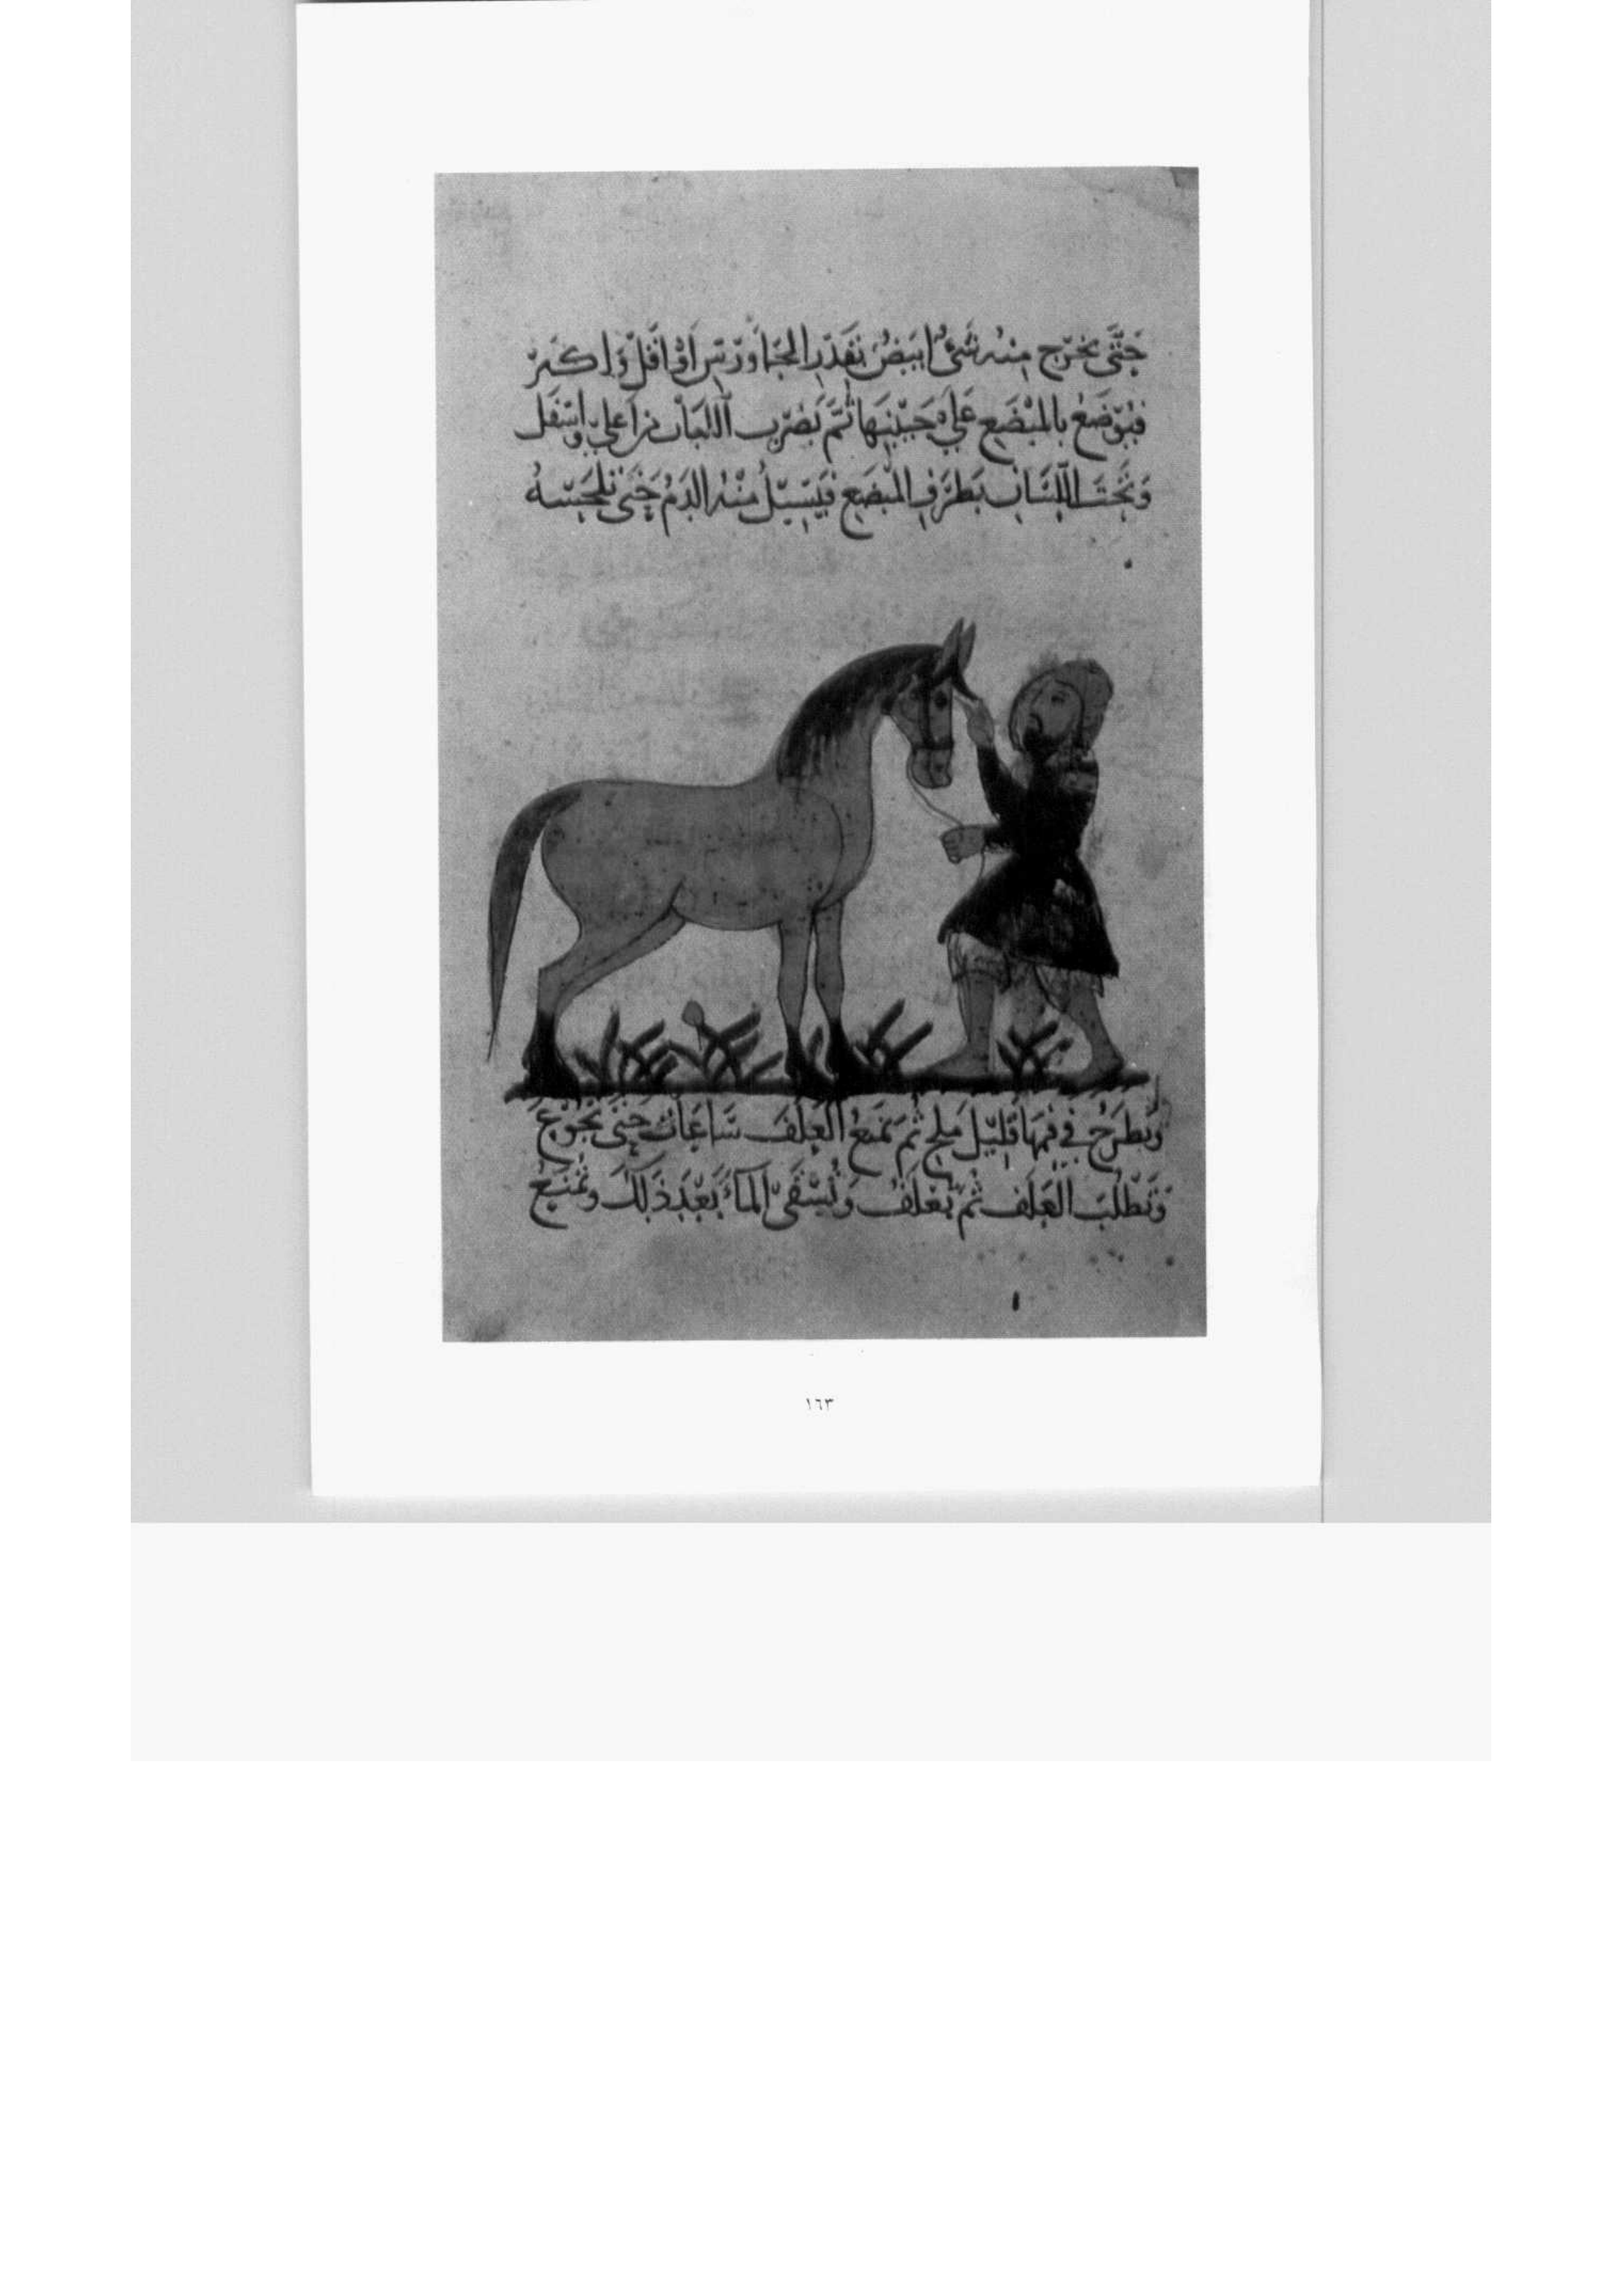 حَتَّى يَخرُج مِنه شَئٌ ابيَضُ بقَدْرِ الجَاوَرْسِ اَوْ اَقَلّ وَاكثرْ
فيُوْضَعُ بالمبْضَعِ عَلى جَنْبَيهَا ثُمَّ يُضْرَب اللهَاتُ من اعلى واسْفل
وَتَحْتَ اللّسَانِ بطَرَفِ المبْضَعِ فيَسِيْلُ مِنْهُ الدَمُ حَتى تلحَسْهُ
وَيُطرَحُ في فمِهَا قَلِيْل مِلحٍ ثُم تمنَعُ العَلَفَ سَاعَات حَتى تَجُوْعَ
وَتَطْلُبَ العَلَف ثُمّ تُعْلَفُ وَتُسْقَى المَاءَ بَعْدَ ذَلكَ وَتُمنَعُ
١٦٣